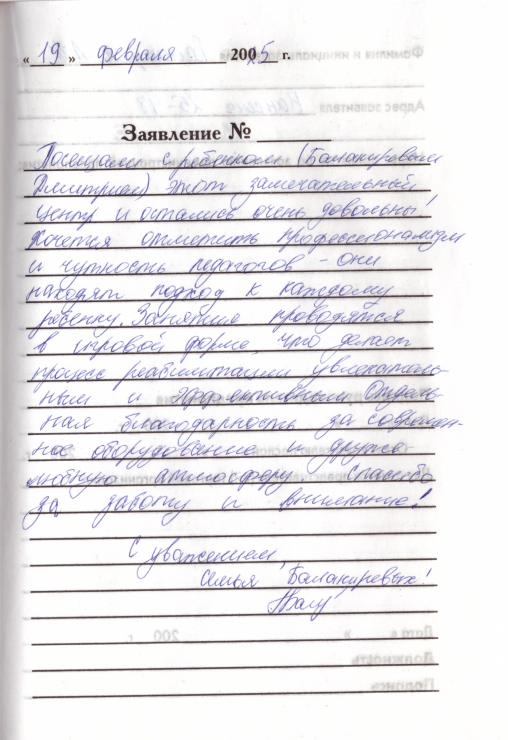 « 19 » февраля 20025 г.
Заявление №
Посещали с ребенком (Балакиревым
Дмитрием) этот замечательный
центр и остались очень довольны!
Хочется отметить профессионализм
и чуткость педагогов - они
находят подход к каждому
ребенку. Занятия проводятся
в игровой форме, что делает
процесс реабилитации увлекатель-
ным и эффективным. Отдель-
ная благодарность за современ-
ное оборудование и друже
любную атмосферу. Спасибо
за заботу и внимание!
С уважением,
Семья Балакиревых!